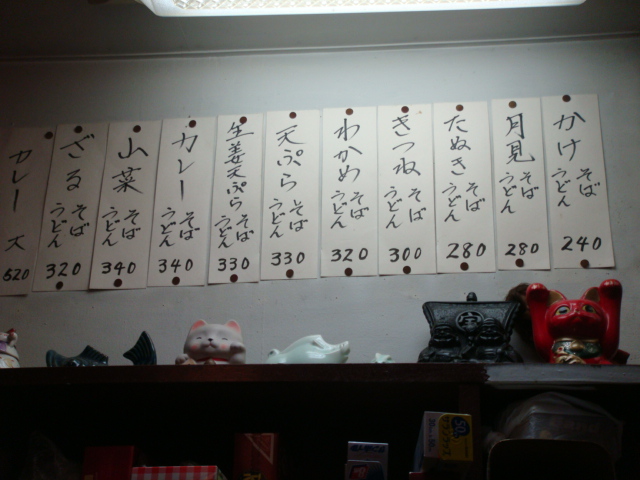 かけ そば うどん 240
月見 そば うどん 280
たぬき そば うどん 280
きつね そば うどん 300
わかめ そば うどん 320
天ぷら そば うどん 330
生姜天ぷら そば うどん 330
カレー そば うどん 340
山菜 そば うどん 340
ざる そば うどん 320
カレー 大 520
宝